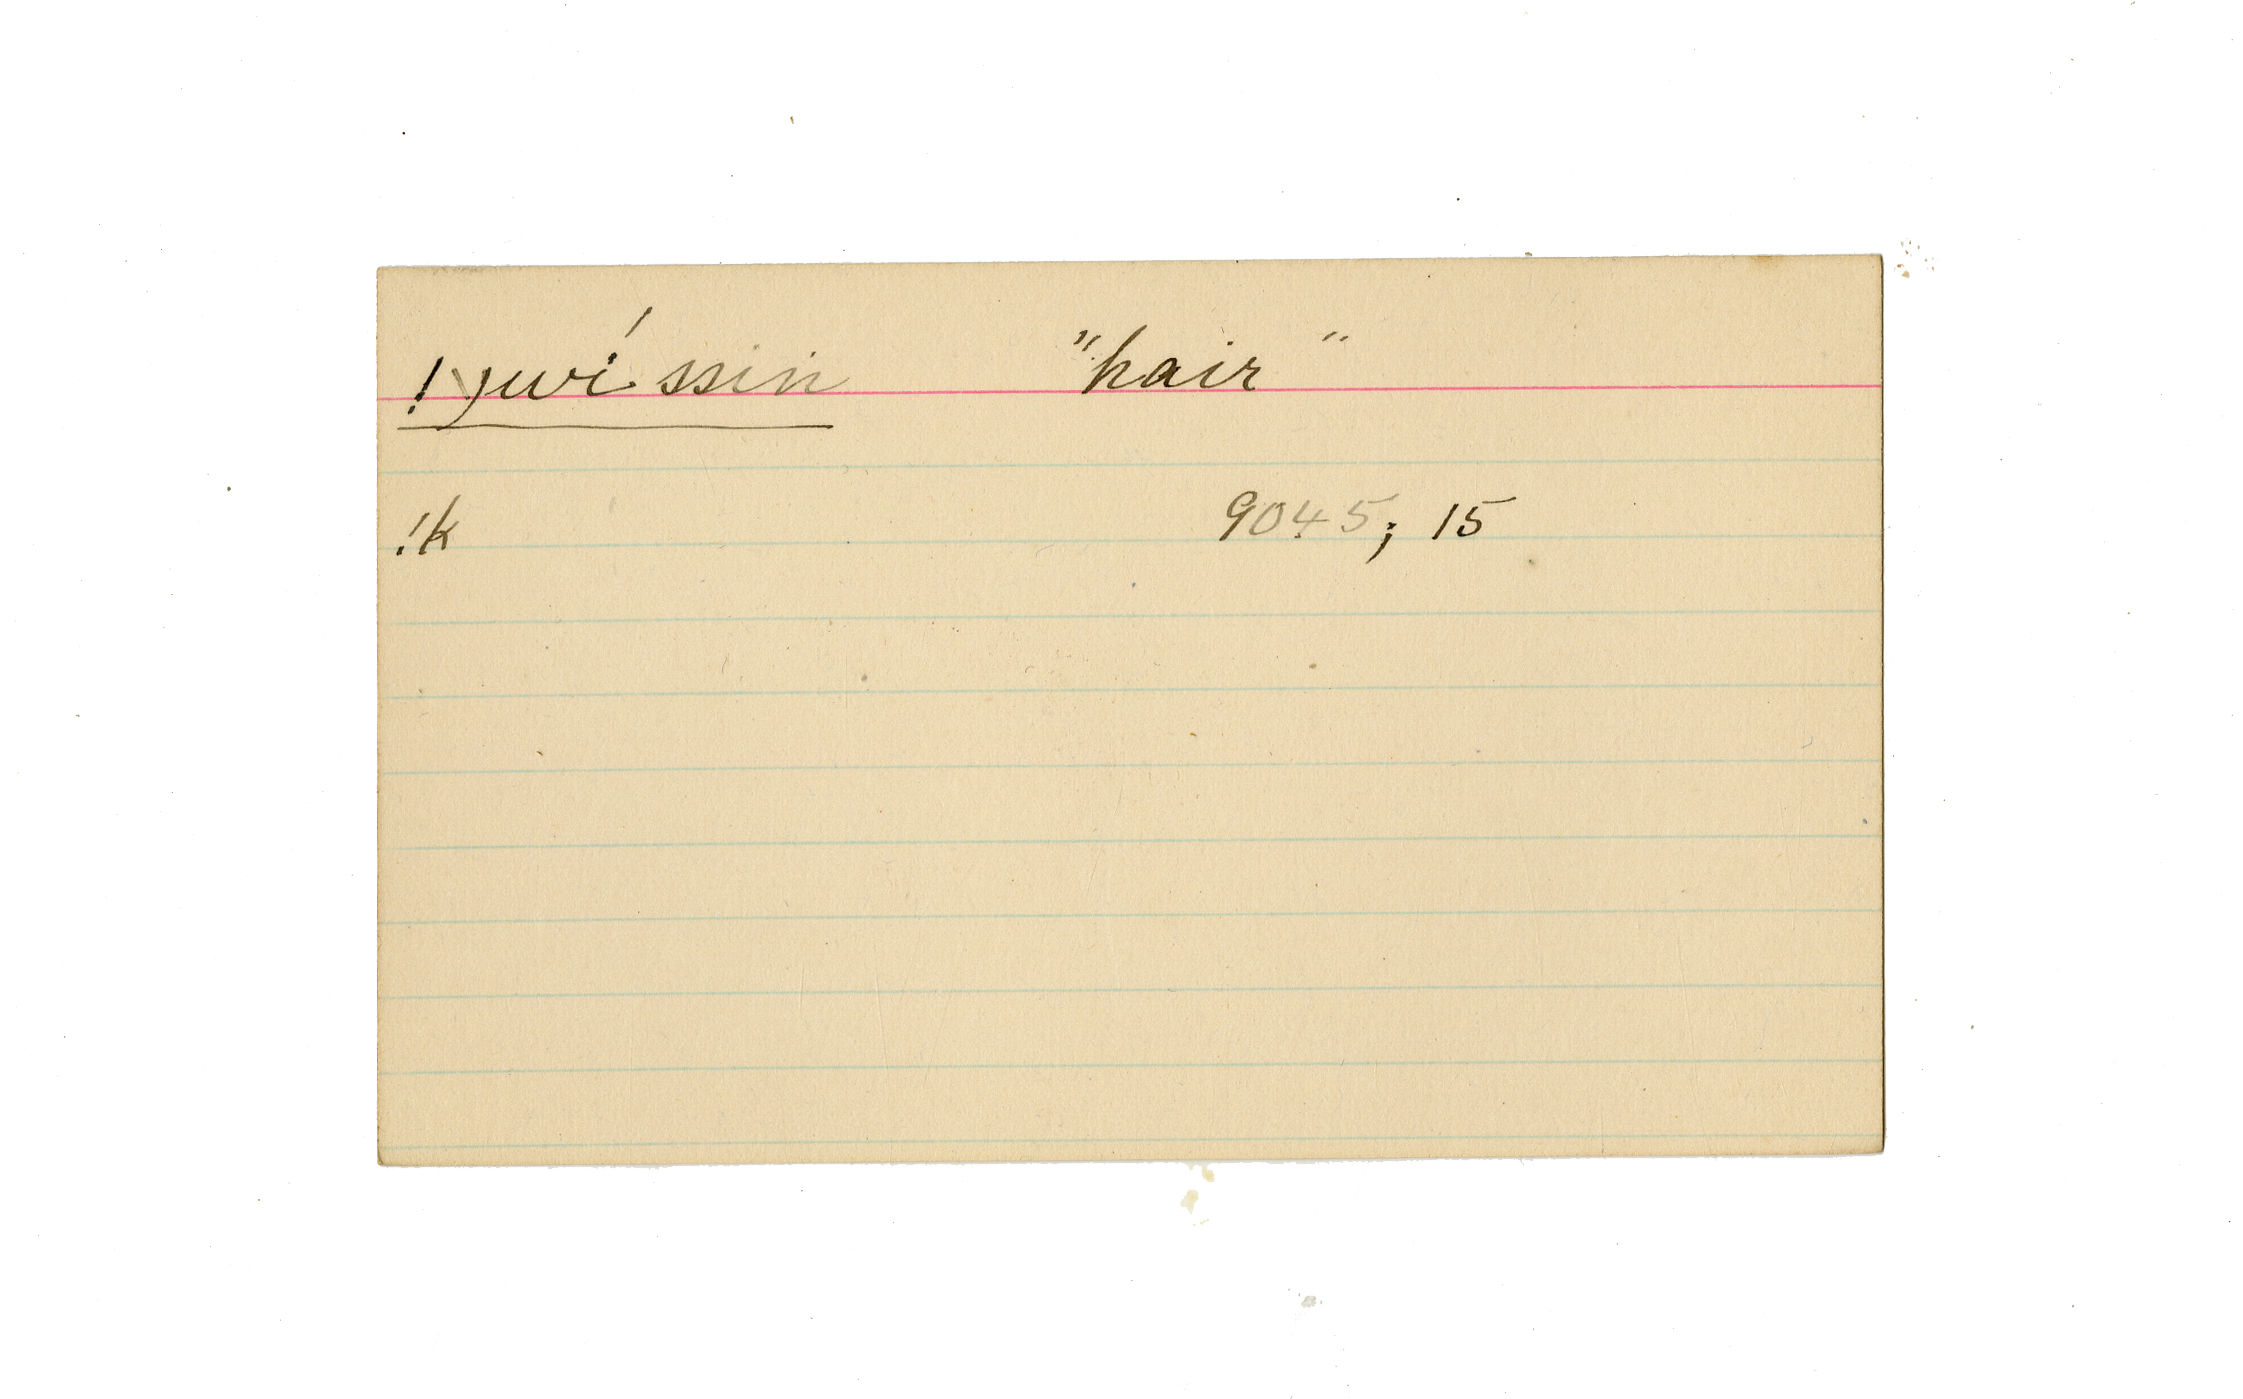 !ywí ssin "hair"
!k 9045; 15